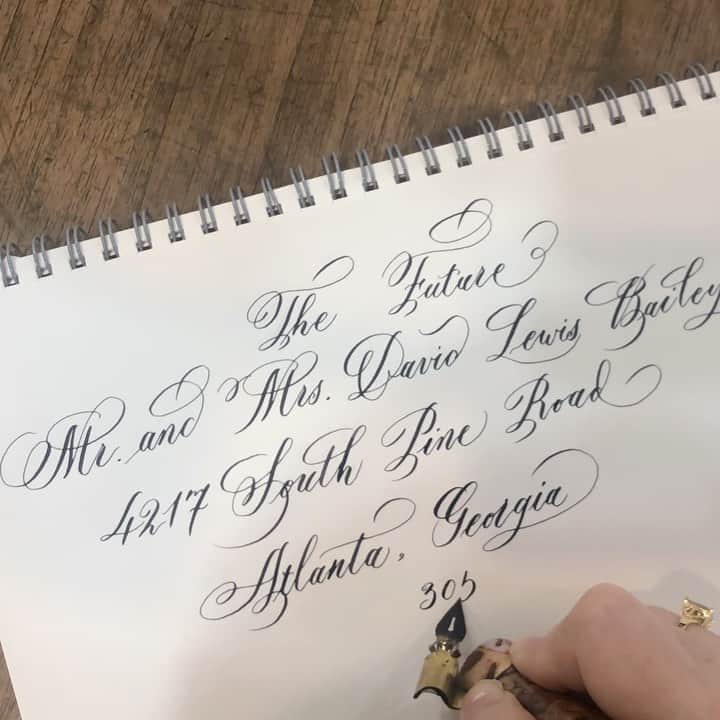 The Future
Mr. and Mrs. David Lewis Bailey
4217 South Pine Road
Atlanta, Georgia
305